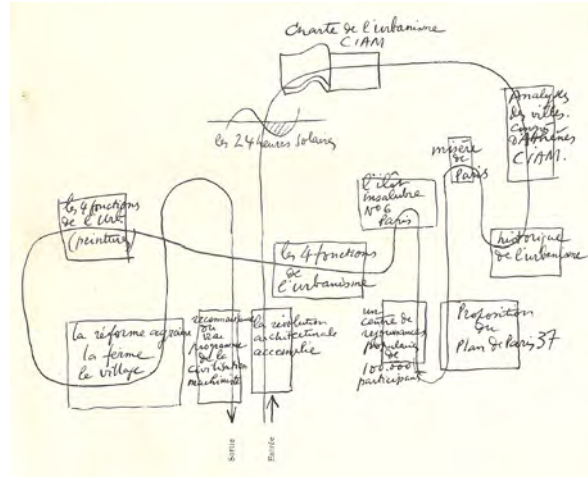 Charte de l'urbanisme
CIAM
les 24 heures solaires
Analyses
des villes.
d'Athènes
CIAM.
misère
de
Paris
l'îlot
insalubre
N° 6
Paris
historique
de l'urbanisme
les 4 fonctions
de l'Urb.
(peinture)
les 4 fonctions
de
l'urbanisme
la réforme agraire
la ferme
le village
reconnaissance
du
programme
de la
civilisation
machiniste
la révolution
architecturale
accomplie
un
centre de
réjouissances
populaires
de
100.000
participants
Proposition
du
Plan de Paris 37
Sortie
Entrée